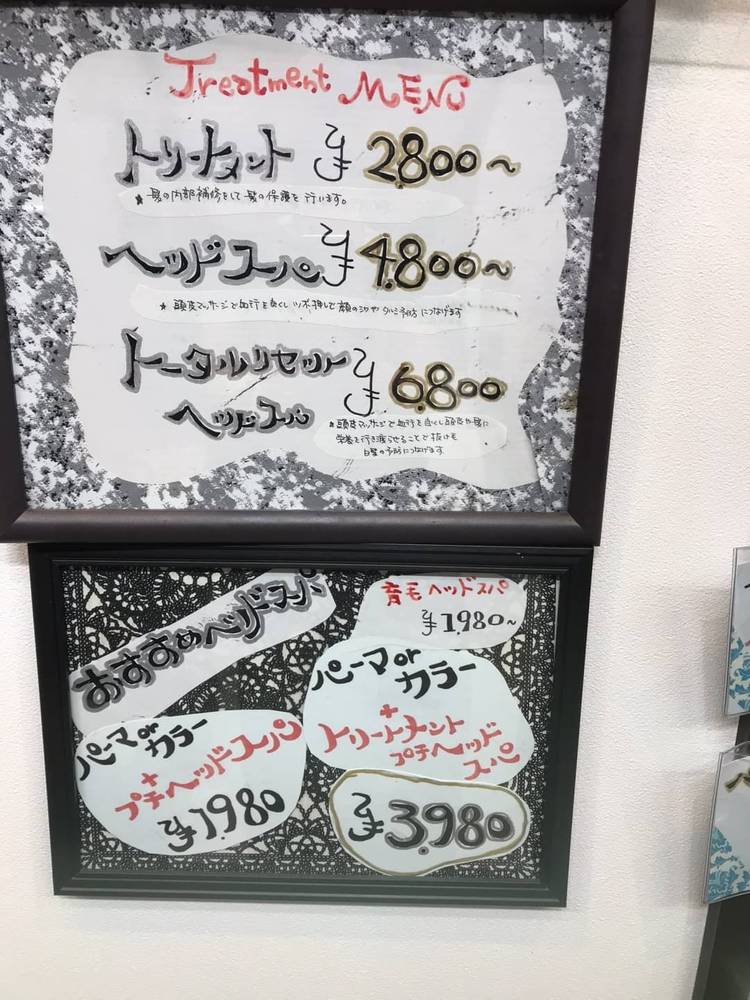 Treatment MENU
トリートメント ¥2.800～
★ 髪の内部補修をして髪の保護を行います。
ヘッドスパ ¥4.800～
★ 頭皮マッサージで血行を良くしツボ押しで顔のシワやタルミ予防につなげます
トータルリセット ¥6.800
ヘッドスパ
★ 頭皮マッサージで血行を良くし頭皮や髪に
栄養を行き渡らせることで抜け毛
白髪の予防につなげます
おすすめヘッドスパ
育毛ヘッドスパ
¥1.980～
パーマorカラー
+
プチヘッドスパ
¥1.980
パーマor
カラー
+
トリートメント
プチヘッド
スパ
¥3.980